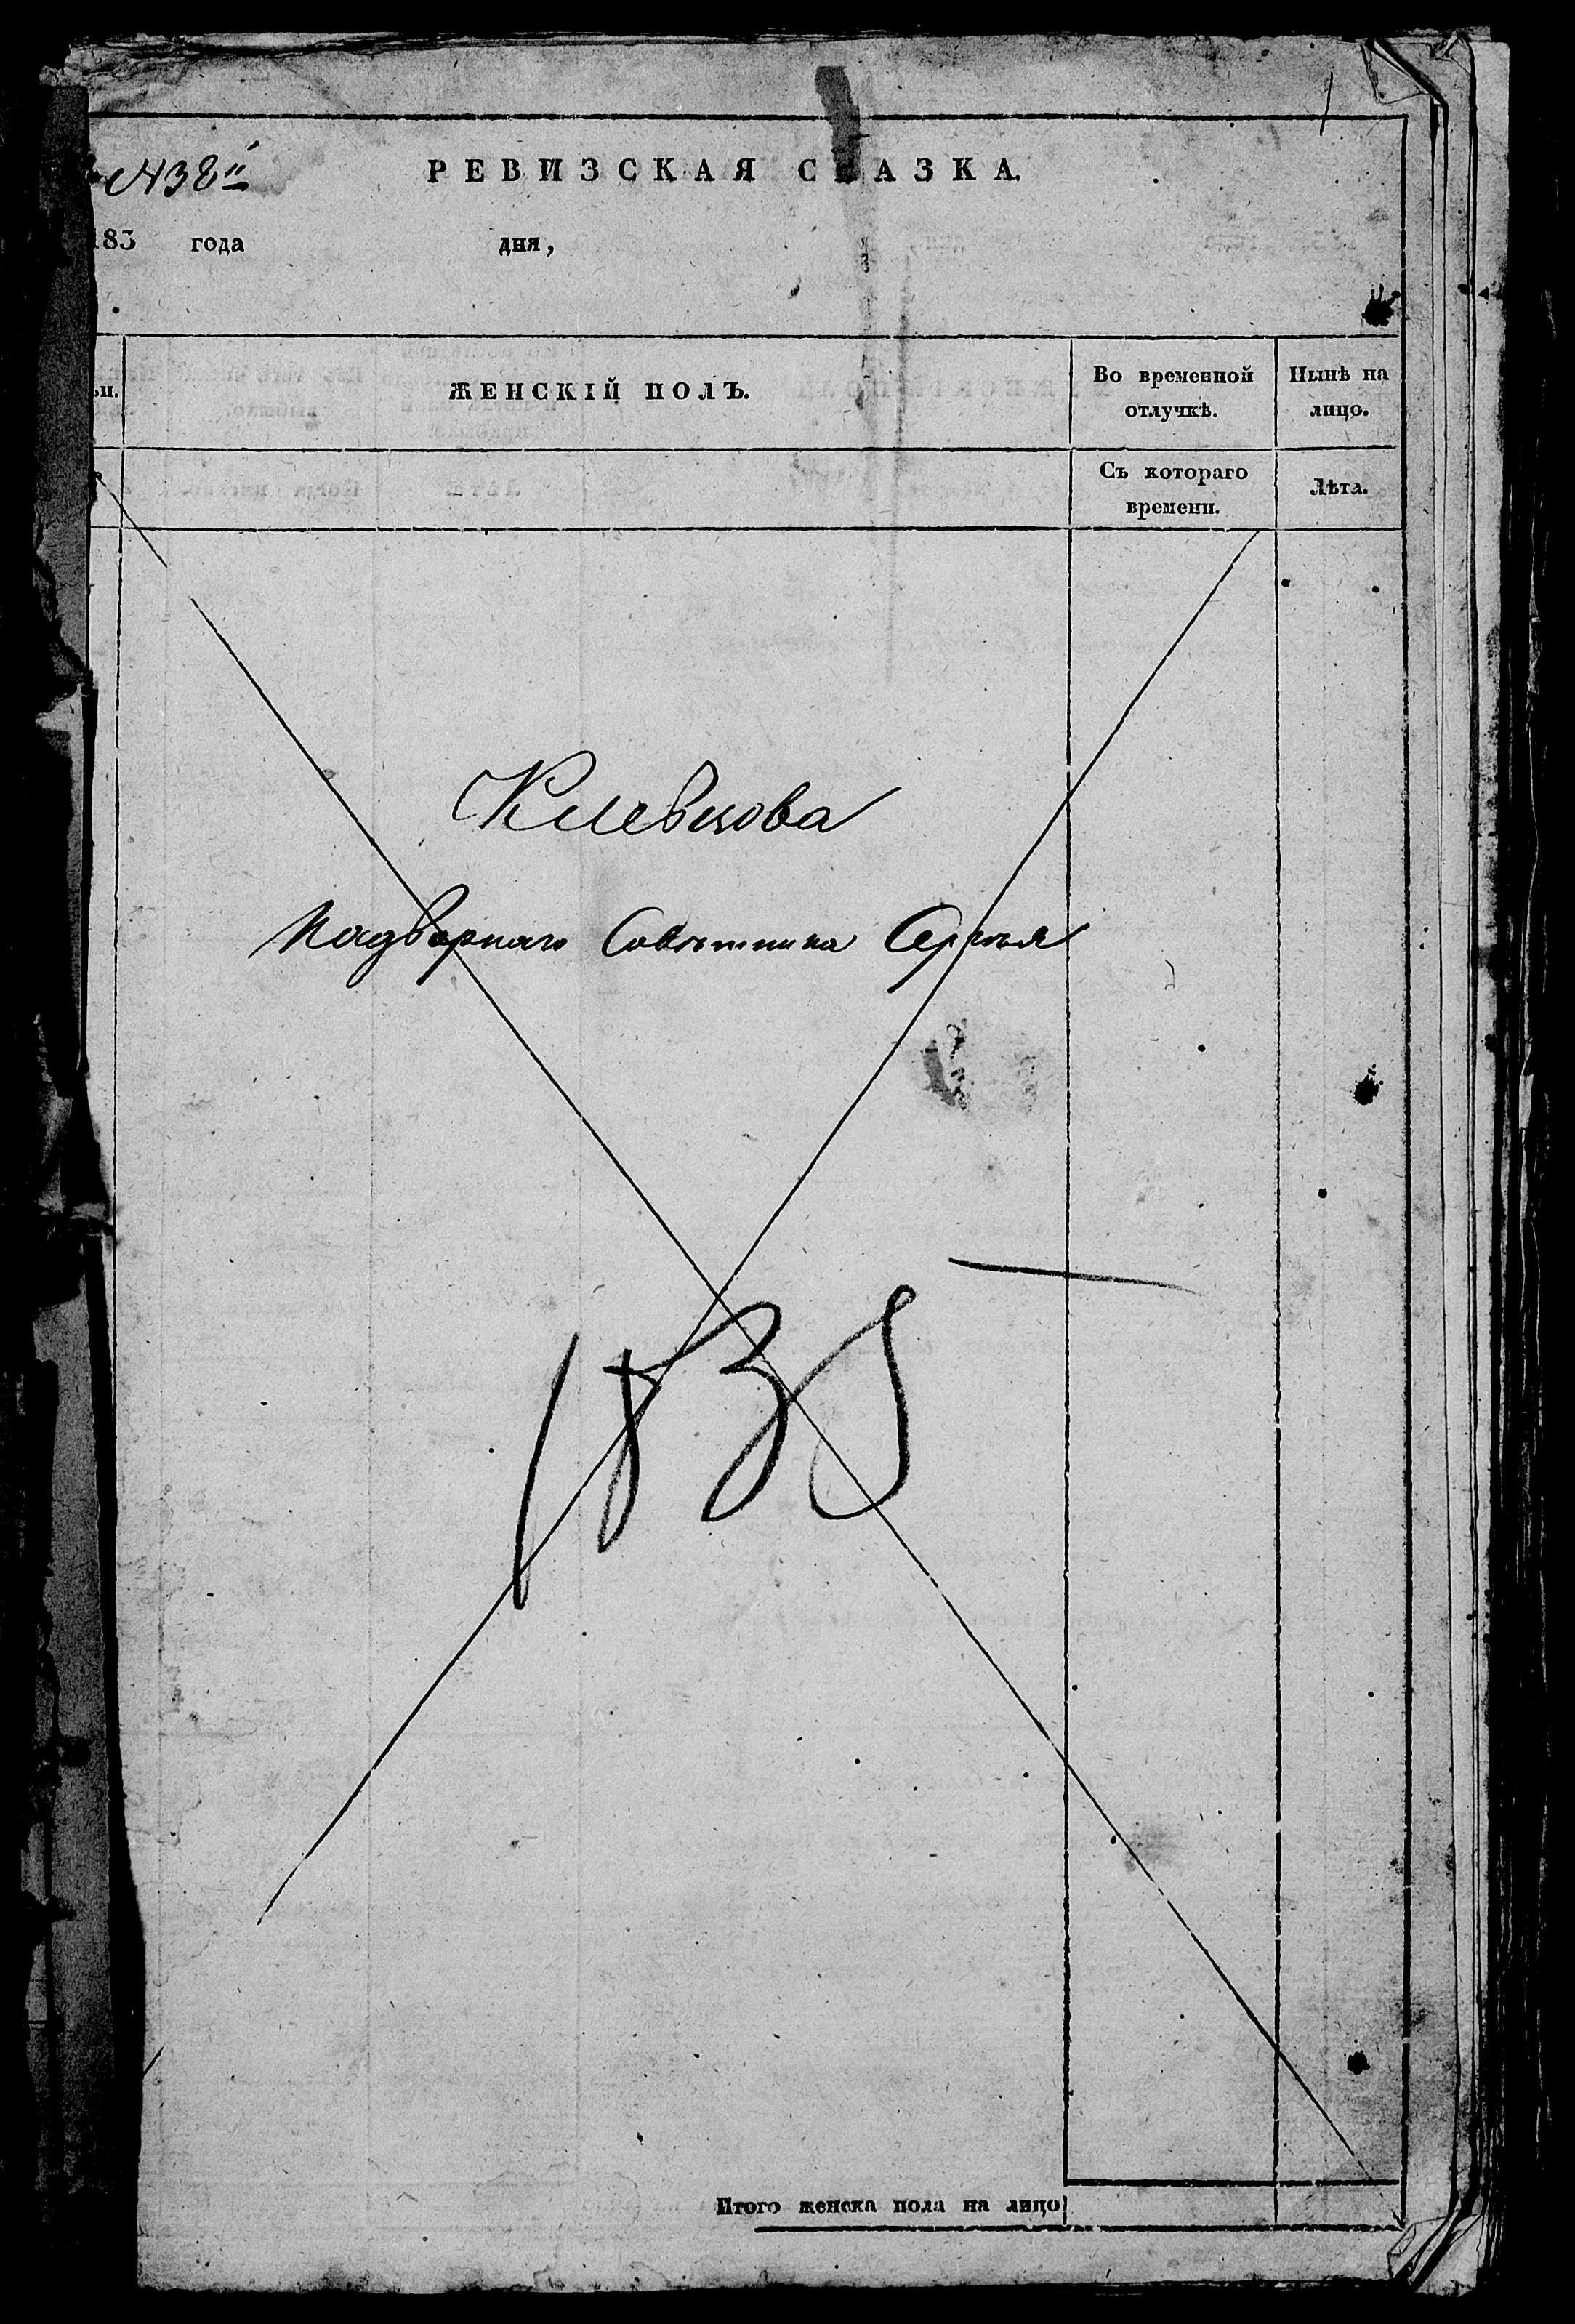 № 38й
РЕВИЗСКАЯ СКАЗКА.
183 года дня,
ЖЕНСКІЙ ПОЛЪ.
Во временной
отлучкѣ.
Нынѣ на
лицо.
Съ котораго
времени.
Лѣта.
Клевцова
Надворнаго Совѣтника Сергѣя
1835
Итого женска пола на лицо